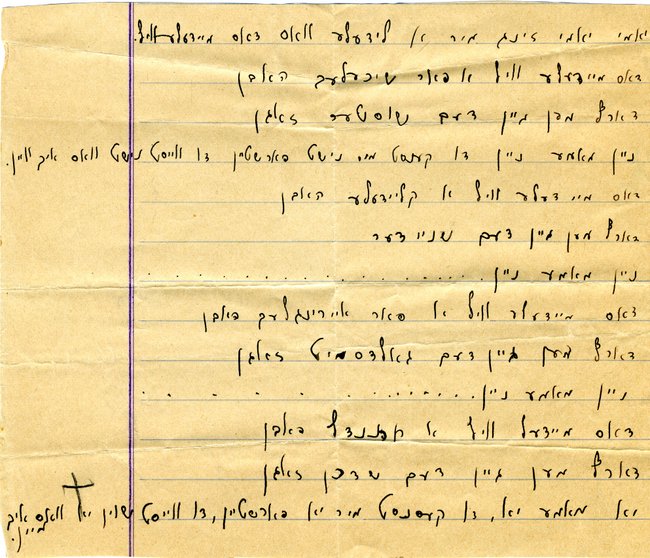 יאמי יאמי זינג מיר א לידעלע וואס דאס מיידעלע וויל.
דאס מיידעלע וויל א פאר שיכעלעך האבן
דארף מען גיין דעם שוסטער זאגן
ניין מאמע ניין דו קענסט מיר נישט פארשטיין דו ווייסט נישט וואס איך מיין.
דאס מיידעלע וויל א קליידעלע האבן
דארף מען גיין דעם שניידער
ניין מאמע ניין. . . . . . . . . . . . . . . . .
דאס מיידעלע וויל א פאר איירינגלעך האבן
דארף מען גיין דעם גאלדסמיט זאגן
ניין מאמע ניין. . . . . . . . . . . . . . . . .
דאס מיידעל וויל א האבן
דארף מען גיין דעם שדכן זאגן
יא מאמע יא, דו קענסט מיר יא פארשטיין, דו ווייסט שוין יא וואס איך
מיין.